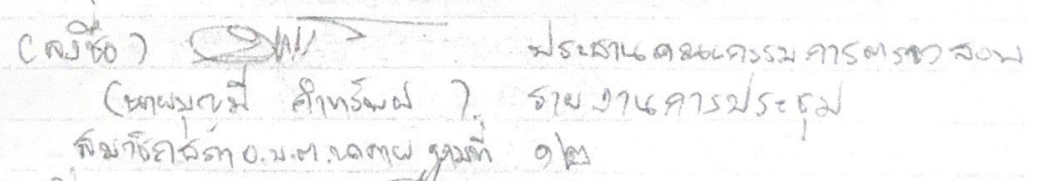 (ลงชื่อ) ประธานคณะกรรมการตรวจสอบ
(นายบุญมี คำทรัพย์) รายงานการประชุม
สมาชิกสภา อ.บ.ต. หมู่ที่ ๑๒